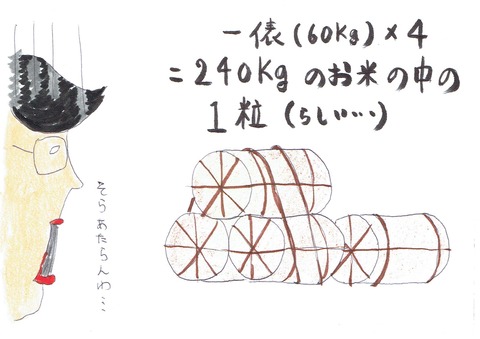 一俵(60Kg)×4
=240Kgのお米の中の
1粒(らしい…)
そらあたらんわ…